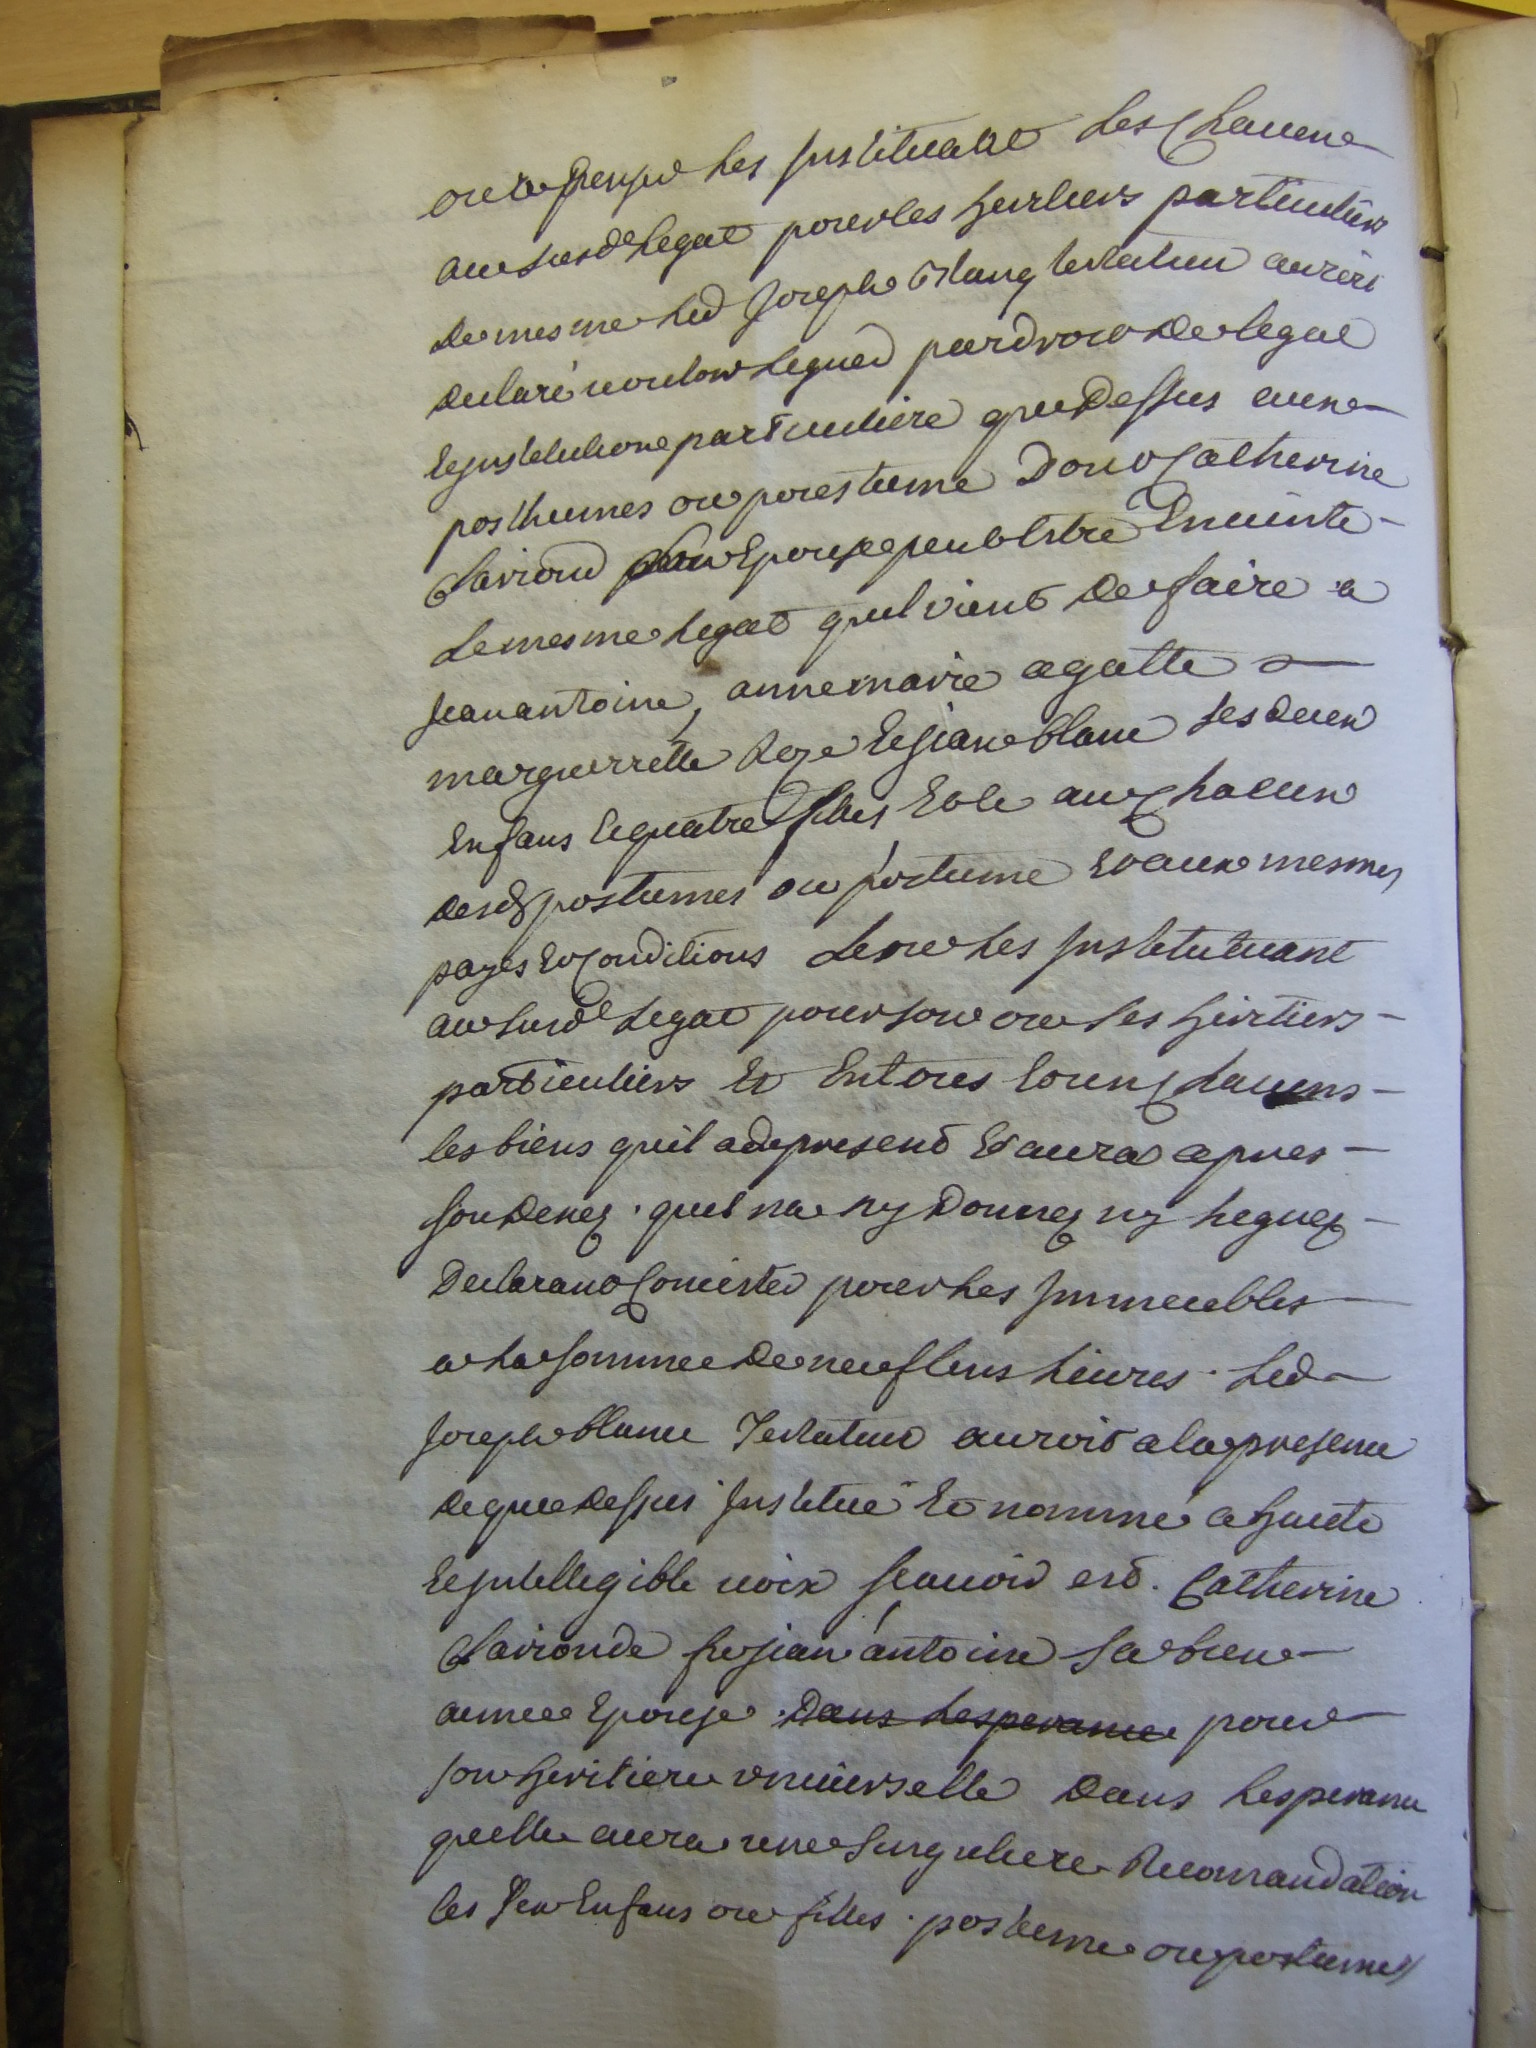 ou les Instituant Les Chacune
au susd legat pour les heirtiers particuliers
de mesme led Joseph Blanq testateur auroit
declaré vouloir leguer par droit de legat
et Institutione particuliere que dessus aux
posthumes ou postume dont Catherine
Clairond son Epouse peut estre Enceinte
le mesme legat quil vient de faire a
Jean antoine, anne marie agatte
marguerrette Roze et Jiane blanc ses deux
Enfans et quatre filles Et le au Chacun
desd postumes ou postume Et aux mesmes
payes Et Conditions de ne les Institutuant
au susd legat pour son ou ses heirtiers
particuliers Et En tous Et un Chacuns
les biens quil a de present Et aura apres
son deces quil na ny donnez ny leguez
Declarant Concister pour les Immeubles
a la somme de neuf Cens Livres. Led
Joseph blanc Testateur auroit a la presence
de que dessus Institue Et nommé a haute
et Intellegible voix scauoir est. Catherine
Clairionde fe Jian antoine sa bien
aimee Epouse dans Lesperance pour
son heritiere vniuerselle dans Lesperance
quelle aura une singuliere Recomandation
les Enfans ou filles postume ou postumes